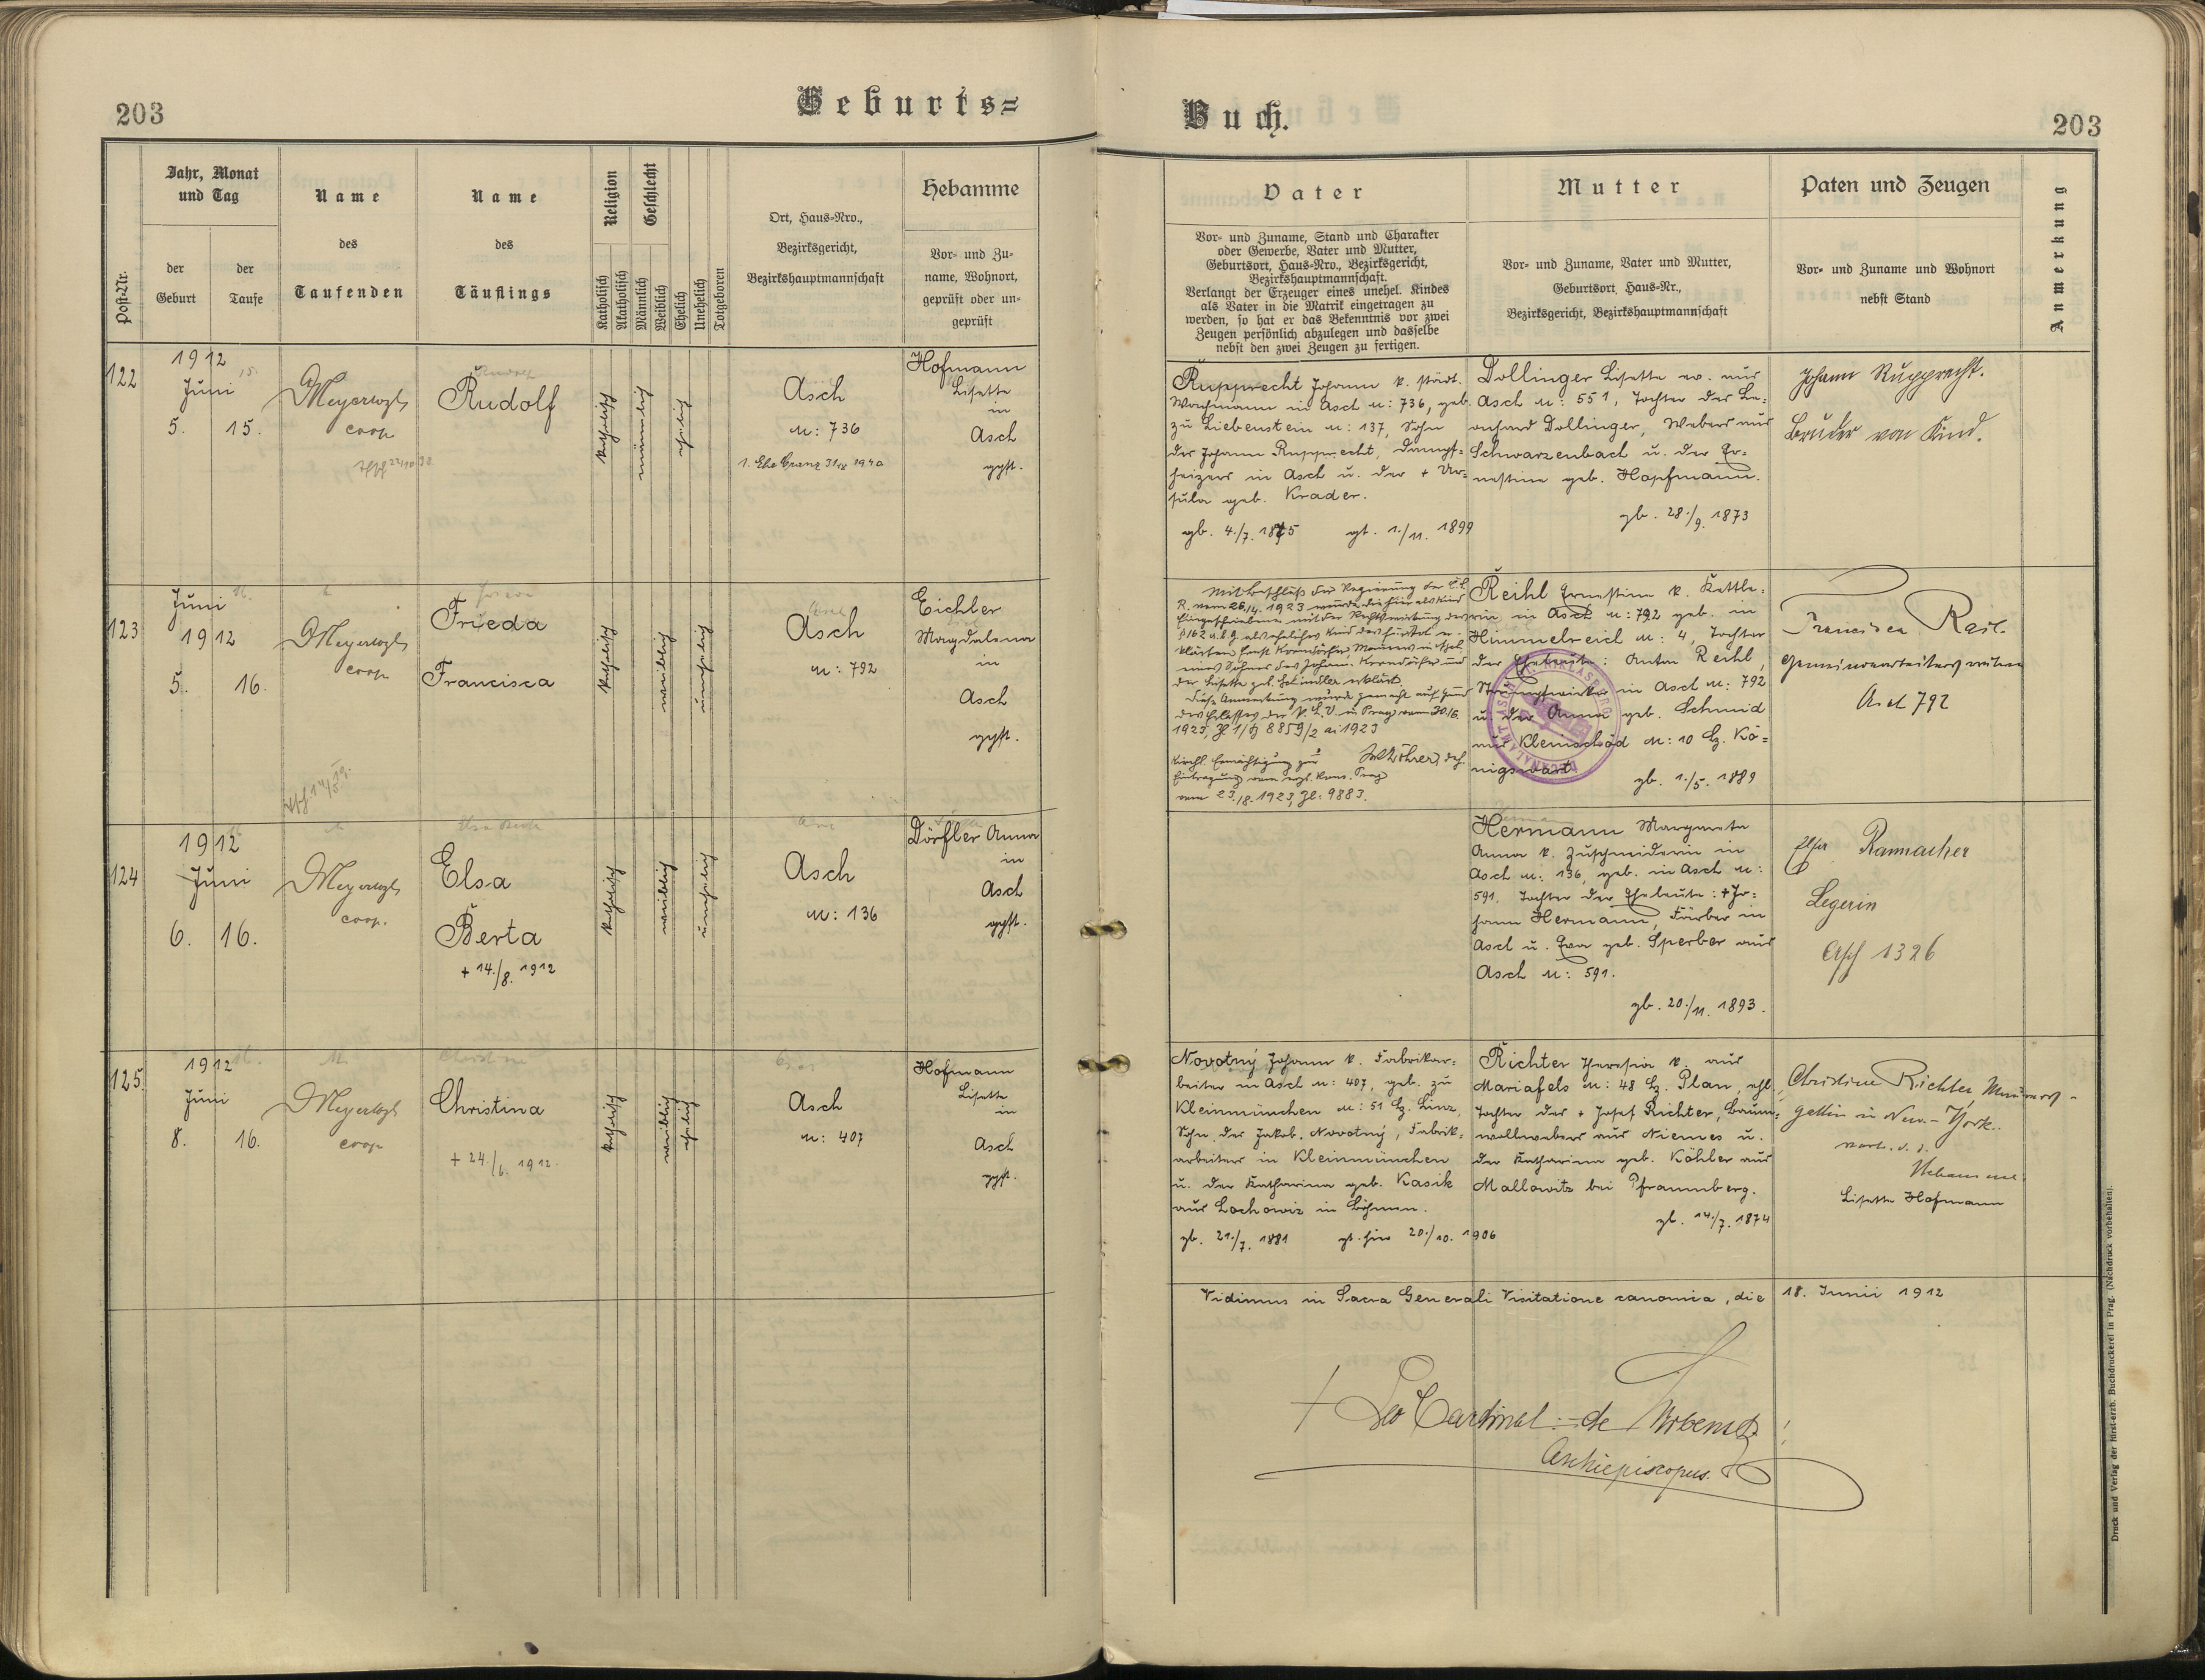 203
Geburts=
Jahr, Monat
und Tag
der
Geburt
der
Taufe
Post-Nr.
Name
des
Taufenden
Name
des
Täuflings
Religion
Katholisch
Akatholisch
Geschlecht
Männlich
Weiblich
Ehelich
Unehelich
Totgeboren
Ort, Haus-Nro.,
Bezirksgericht,
Bezirkshauptmannschaft
Hebamme
Vor- und Zu-
name, Wohnort,
geprüft oder un-
geprüft
122
1912
Juni
5. 15.
Meyer
coop.
Rudolf
katholisch
männlich
ehelich
Asch
N: 736
Hofmann
Lisette
in
Asch
gepft.
123
Juni
1912
5. 16.
Meyer
coop.
Frieda
Francisca
katholisch
weiblich
unehelich
Asch
N: 792
Eichler
Magdalena
in
Asch
gepft.
124
1912
Juni
6. 16.
Meyer
coop.
Elsa
Berta
+ 14./8. 1912
katholisch
weiblich
unehelich
Asch
N: 136
Dörfler Anna
in
Asch
gepft.
125.
1912
Juni
8. 16.
Meyer
coop.
Christina
+ 24/6. 1912.
katholisch
weiblich
ehelich
Asch
N: 407
Hofmann
Lisette
in
Asch
gepft.
Buch.
203
Vater
Vor- und Zuname, Stand und Charakter
oder Gewerbe, Vater und Mutter,
Geburtsort, Haus-Nro., Bezirksgericht,
Bezirkshauptmannschaft.
Verlangt der Erzeuger eines unehel. Kindes
als Vater in die Matrik eingetragen zu
werden, so hat er das Bekenntnis vor zwei
Zeugen persönlich abzulegen und dasselbe
nebst den zwei Zeugen zu fertigen.
Mutter
Vor- und Zuname, Vater und Mutter,
Geburtsort, Haus-Nr.,
Bezirksgericht, Bezirkshauptmannschaft
Paten und Zeugen
Vor- und Zuname und Wohnort
nebst Stand
Anmerkung
Rupprecht Johann k. städt.
Wachmann in Asch N: 736, geb.
zu Liebenstein N: 137, Sohn
des Johann Rupprecht, Dampf=
heizers in Asch u. der + Ur=
sula geb. Krader.
gb. 4./7. 1875 gt. 1./11. 1899
Dollinger Lisette ev. aus
Asch N: 551, Tochter des Le=
onhard Dollinger, Webers aus
Schwarzenbach u. der Er=
nestine geb. Hopfmann.
gb. 28./9. 1873
Johann Rupprecht.
Bruder von Kind.
Mit Beschluß der Regierung der
R. vom 26./4. 1923 wurde die hier als Kind
Diese Anmerkung wurde gemacht auf Grund
des Erlasses der in Prag vom 30/6.
1923, Z 1/ 8859/2 ai 1923
vom 23./8. 1923, Zl: 9883.
Reihl Ernestine k. Kettle=
rin in Asch N: 792 geb. in
Himmelreich N: 4, Tochter
der Eheleute: Anton Reihl,
Strumpfwirker in Asch N: 792
u. der Anna geb. Schmid
aus N: 10 Bz. Kö=
nigswart
gb. 1./5. 1889
Asch 792
Hermann Margareta
Anna k. Zuschneiderin in
Asch N: 136, geb. in Asch N:
591, Tochter der Eheleute: + Jo=
hann Hermann, Färber in
Asch u. Eva geb. Sperber aus
Asch N: 591.
gb. 20./11. 1893.
Legerin
Asch 1326
Novotný Johann k. Fabrikar=
beiter in Asch N: 407, geb. zu
Kleinmünchen N: 51 Bz. Linz,
Sohn des Jakob Novotný, Fabrik=
arbeiters in Kleinmünchen
u. der Katharina geb. Kasik
aus Lochowiz in Böhmen.
gb. 21./7. 1881 gt. hier 20./10. 1906
Richter Theresia k. aus
Mariafels N: 48 Bz. Plan, ehl.
Tochter des + Josef Richter, Baum=
wollwebers aus Niemes u.
der Katharina geb. Köhler aus
Mallowitz bei Pfraumberg.
gb. 14./7. 1874
Christine Richter, Maurers-
gattin in New-York.
Hebamme
Lisette Hofmann
Vidimus in Sacra Generali Visitatione canonica, die 18. Junii 1912
+ Leo Cardinal de Skrbensky
Archiepiscopus.
Druck und Verlag der fürst-erzb. Buchdruckerei in Prag. (Nachdruck vorbehalten).